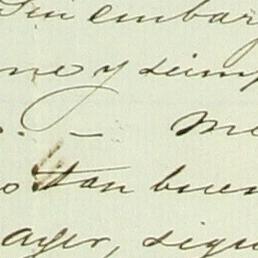 Sin embar
ne y simp
. — Me
o tan buen
ayer, sigu